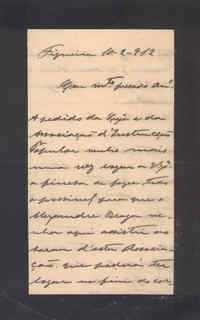 Figueira 10-2-902
Meu mto prezado Amo.
A pedido da Loja e da
Associação d'Instrucção
Popular venho mais
uma vez rogar a V. Exª
a fineza de fazer todo
o possivel para que o
Alexandre Braga ve-
nha aqui assistir ao
sarau d'esta Associa-
ção, que poderá ter
logar no fim do cor-